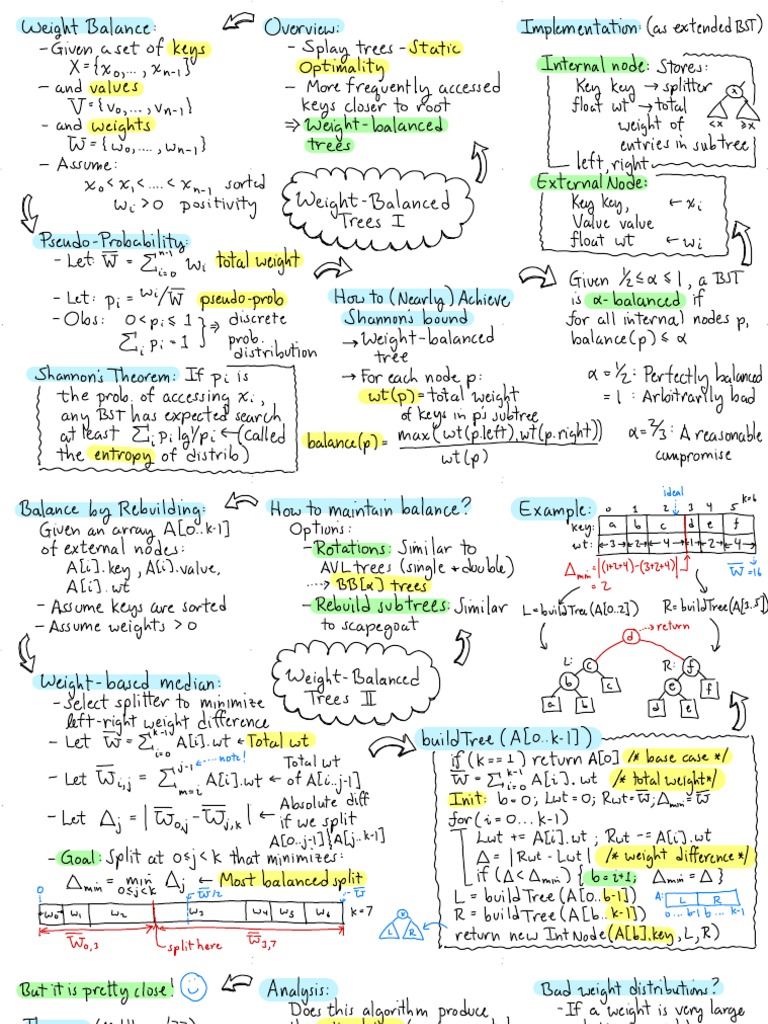 Weight Balance:
- Given a set of keys
X = {x0,..., xn-1}
- and values
V = {v0,..., vn-1}
- and weights
W = {w0,..., wn-1}
- Assume:
x0 < x1 < .... < xn-1 sorted
wi > 0 positivity
Overview:
- Splay trees - Static
Optimality
- More frequently accessed
keys closer to root
⇒ Weight-balanced
trees
Weight-Balanced
Trees I
Implementation: (as extended BST)
Internal node: Stores:
Key key → splitter
float wt → total
weight of
entries in subtree
left, right
x
<x ≥x
External Node:
Key key, ← xi
Value value
float wt ← wi
Pseudo-Probability:
- Let: W̅ = Σ i=0 n-1 wi total weight
- Let: pi = wi/W̅ pseudo-prob
- Obs: 0 < pi ≤ 1
Σi pi = 1
⇒ discrete
prob.
distribution
Shannon's Theorem: If pi is
the prob. of accessing xi,
any BST has expected search
at least Σi pi lg 1/pi ← (called
the entropy of distrib)
How to (Nearly) Achieve
Shannon's bound
→ Weight-balanced
tree
→ For each node p:
wt(p) = total weight
of keys in p's subtree
balance(p) = max(wt(p.left), wt(p.right))
wt(p)
Given 1/2 ≤ α ≤ 1, a BST
is α-balanced if
for all internal nodes p,
balance(p) ≤ α
α = 1/2: Perfectly balanced
= 1: Arbitrarily bad
α = 2/3: A reasonable
compromise
Balance by Rebuilding:
Given an array A[0..k-1]
of external nodes:
A[i].key, A[i].value,
A[i].wt
- Assume keys are sorted
- Assume weights > 0
How to maintain balance?
Options:
- Rotations: Similar to
AVL trees (single + double)
....> BB[α] trees
- Rebuild subtrees: Similar
to scapegoat
Weight-Balanced
Trees II
Example:
ideal
0 1 2 3 4 5 k=6
key: a b c d e f
wt: 3 2 4 1 2 4
Δmin = |(1+2+4)-(3+2+4)|
= 2
W̅ = 16
L = buildTree(A[0..2]) R = buildTree(A[3..5])
d ...> return
L: c R: f
b c e f
a b d e
Weight-based median:
- Select splitter to minimize
left-right weight difference
- Let W̅ = Σ i=0 k-1 A[i].wt ← Total wt
note!
- Let W̅i,j = Σ m=i j-1 A[i].wt ← Total wt of A[i..j-1]
- Let Δj = |W̅0,j - W̅j,k| ← Absolute diff
if we split
A[0..j-1] } A[j..k-1]
- Goal: Split at 0≤j<k that minimizes:
Δmin = min 0≤j<k Δj ← Most balanced split
0 W̅/2 W̅
w0 w1 w2 w3 w4 w5 w6 k=7
W̅0,3 split here W̅3,7
buildTree (A[0..k-1])
if (k==1) return A[0] /* base case */
W̅ = Σ i=0 k-1 A[i].wt /* total weight */
Init: b=0; Lwt=0; Rwt=W̅; Δmin=W̅
for (i=0...k-1)
Lwt += A[i].wt; Rwt -= A[i].wt
Δ = |Rwt - Lwt| /* weight difference */
if (Δ<Δmin) { b=i+1; Δmin=Δ }
L = buildTree(A[0..b-1])
R = buildTree(A[b..k-1])
return new IntNode(A[b].key, L, R)
A: L R
0 ... b-1 b ... k-1
L R
But it is pretty close!
Analysis:
Does this algorithm produce
Bad weight distributions?
- If a weight is very large